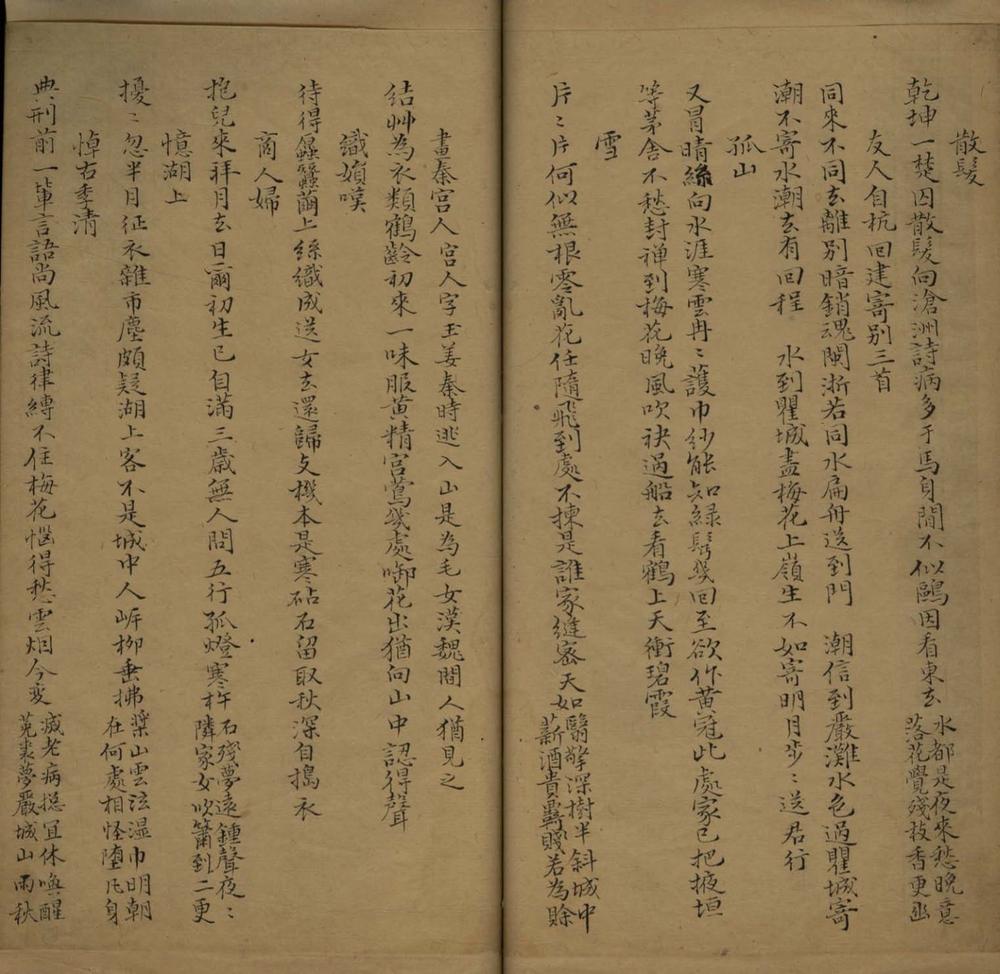 散髮
乾坤一楚囚散髮向滄洲詩病多于馬身閒不似鷗因看東去
水都是夜來愁晚意
落花覺殘枝香更幽
友人自杭回建寄别三首
同來不同去離別暗銷魂閩浙若同水扁舟送到門　潮信到嚴灘水色過瞿城寄
潮不寄水潮去有回程　水到瞿城盡梅花上嶺生不如寄明月步〻送君行
孤山
又冒晴絲向水涯寒雲冉〻護巾紗能知綠鬂幾回至欲作黃冠此處家已把掖垣
等茅舍不愁封禅到梅花晚風吹袂過船去看鶴上天衝碧霞
雪
片〻片何似無根零亂花任隨飛到處不揀是誰家縫密天如
翳擎深樹半斜城中
薪酒貴霽賤若為賒
畫秦宮人 宮人字玉姜秦時逃入山是為毛女漢魏間人猶見之
結艸為衣類鶴齡初來一味服黃精宮鶯幾處啣花出猶向山中認得聲
織婦嘆
待得蠶蠶繭上絲織成送女去還歸支機本是寒砧石留取秋深自搗衣
商人婦
抱兒來拜月去日爾初生已自滿三歲無人問五行孤燈寒杵
石殘夢遠鍾聲夜〻
隣家女吹簫到二更
憶湖上
擾〻忽半月征衣雜市塵頗疑湖上客不是城中人岍柳垂拂
槳山雲泫湿巾明朝
在何處相怪堕凡身
悼右季清
典刑前一輩言語尚風流詩律縛不住梅花惱得愁雲烟今变
滅老病揔宜休喚醒
菟裘夢嚴城山雨秋